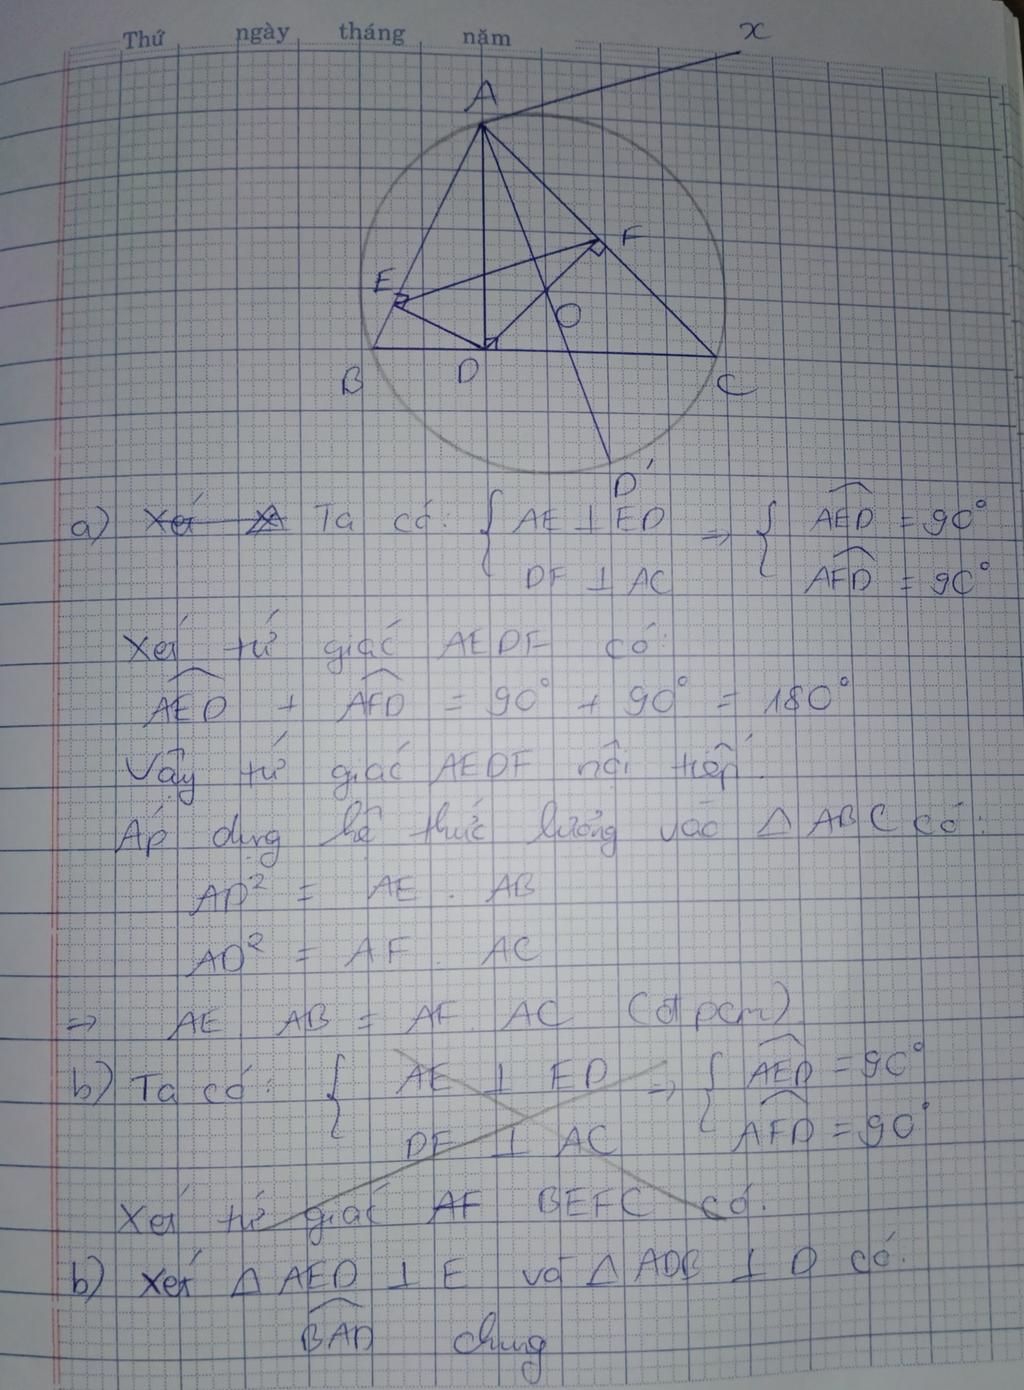 Thứ ngày tháng năm
x
A
E
F
O
B D C
D'
a) Xét Ta có: { AE ⊥ ED ⇒ { AED = 90°
DF ⊥ AC AFD = 90°
Xét tứ giác AEDF có:
AED + AFD = 90° + 90° = 180°
Vậy tứ giác AEDF nội tiếp.
Áp dụng hệ thức lượng vào △ ABC có:
AD² = AE . AB
AD² = AF . AC
⇒ AE . AB = AF . AC (đpcm)
b) Ta có: { AE ⊥ ED ⇒ { AED = 90°
DF ⊥ AC AFD = 90°
Xét tứ giác AF BEFC có:
b) Xét △ AED ⊥ E và △ ADB ⊥ D có:
BAD chung